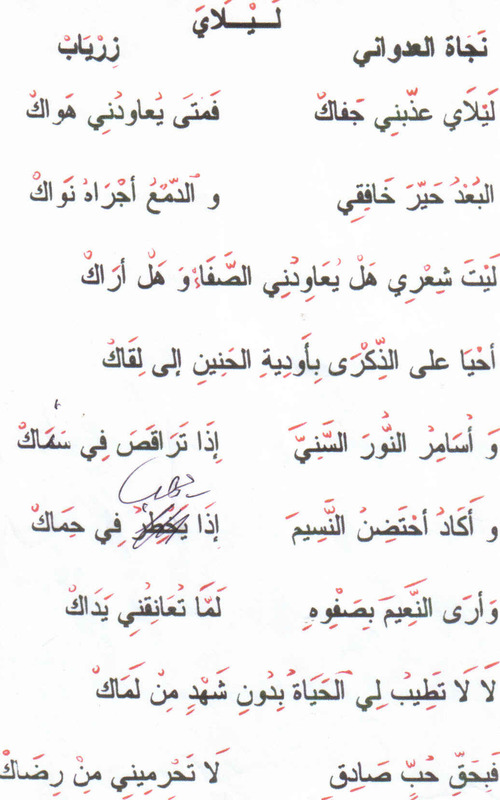 لَــيْــلَايَ
نَجَاة العدواني زِرْيَابْ
لَيْلَاي عذّبني جَفاكْ فَمتَى يُعاودُنِي هَواكْ
البُعْدُ حَيَّرَ خَافِقِي و الدّمْعُ أجْرَاهُ نَوَاكْ
لَيْتَ شِعْرِي هَلْ يُعَاوِدُنِي الصَّفَاءُ وَ هَلْ أرَاكْ
أحْيَا على الذِّكْرَى بِأَودِيةِ الحَنينِ إلى لِقَاكْ
وَ أُسَامِرُ النُّورَ السَّنِيَّ إِذَا تَرَاقَصَ فِي سَمَاكْ
وَ أَكَادُ أحْتَضِنُ النَّسِيمَ إذَا يَخْطُرُ فِي حِمَاكْ
وَأرَى النَّعِيمَ بِصَفْوِهِ لَمَّا تُعَانِقُنِي يَدَاكْ
لَا لَا تَطِيبُ لِي الحَيَاةُ بِدُونِ شَهْدٍ مِنْ لَمَاكْ
فَبِحَقِّ حُبٍّ صَادِقٍ لَا تَحْرِمِينِي مِنْ رِضَاكْ